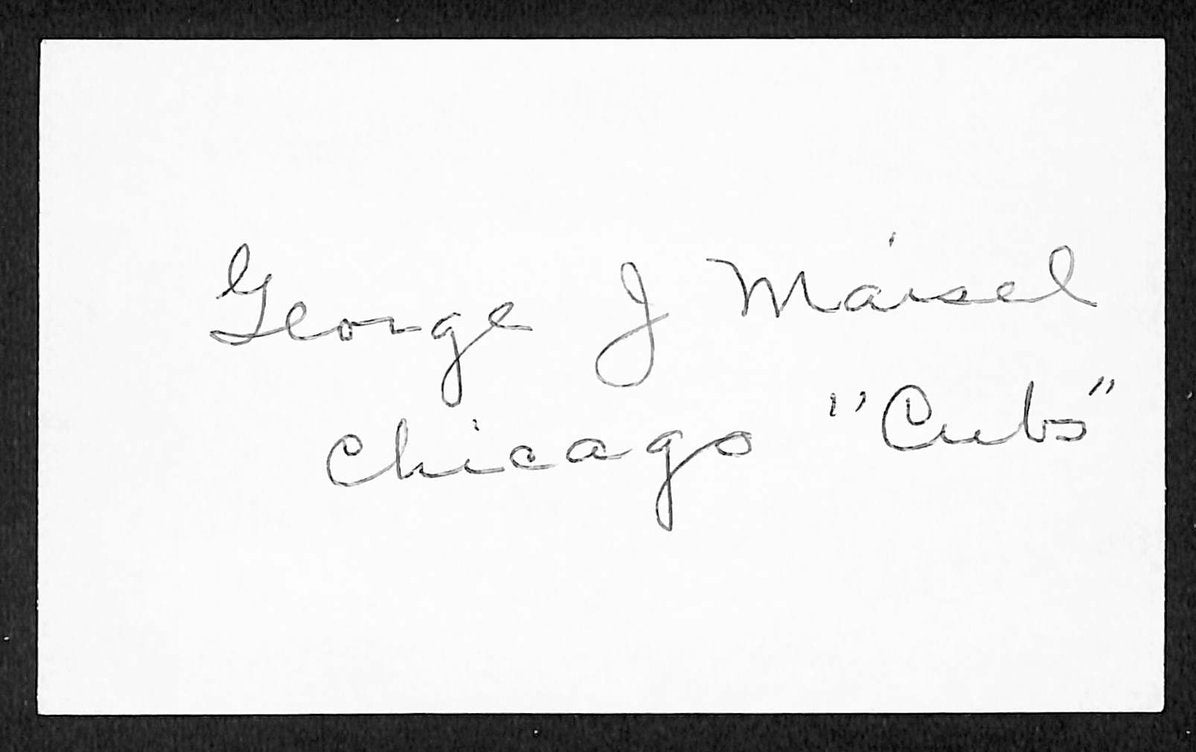 George J Maisel
Chicago "Cubs"